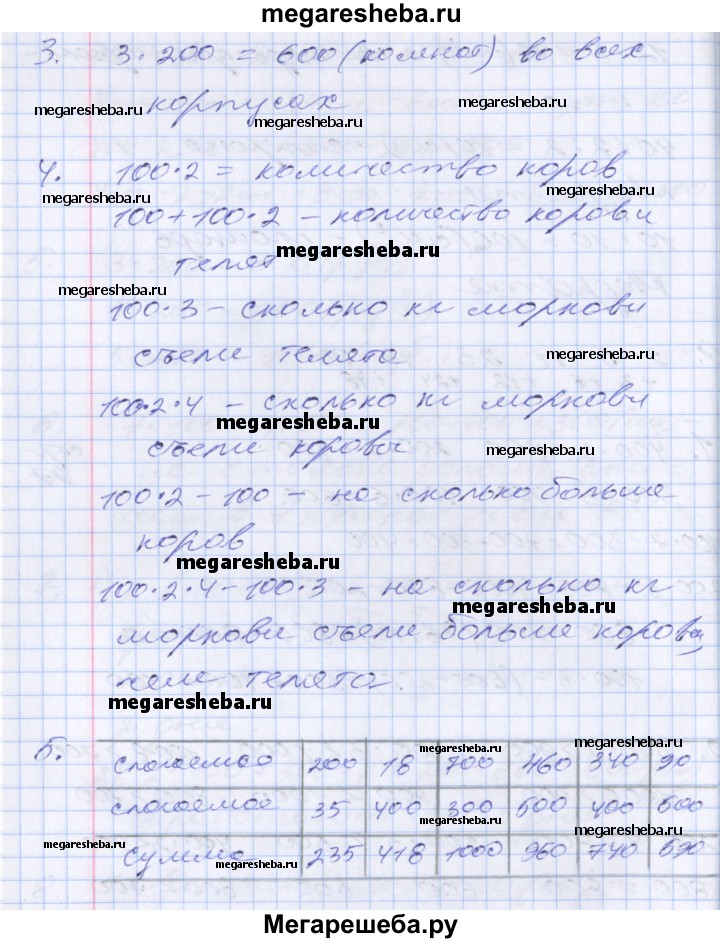 megaresheba.ru
3. 3·200 = 600 (комнат) во всех
megaresheba.ru корпусах megaresheba.ru megaresheba.ru
4. 100·2 = количество коров
megaresheba.ru megaresheba.ru
100+100·2 – количество коров и
megaresheba.ru
телят
megaresheba.ru
100·3 – сколько кг моркови
съели телята megaresheba.ru
100·2·4 – сколько кг моркови
megaresheba.ru
съели коровы megaresheba.ru
100·2 – 100 – на сколько больше
коров
megaresheba.ru
100·2·4 – 100·3 – на сколько кг
megaresheba.ru
моркови съели больше коровы
чем телята.
megaresheba.ru
5. слагаемое 200 18 700 460 340 90
megaresheba.ru megaresheba.ru
слагаемое 35 400 300 500 400 500
megaresheba.ru megaresheba.ru
сумма 235 418 1000 960 740 590
megaresheba.ru megaresheba.ru megaresheba.ru
Мегарешеба.ру